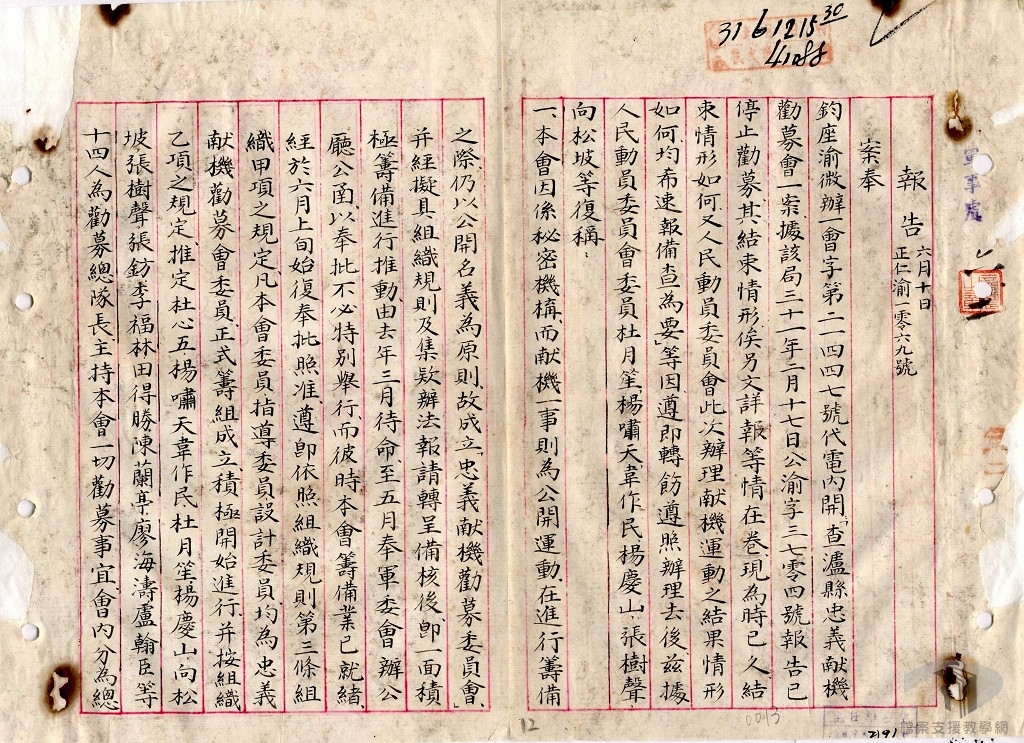 31 6 12 15 30
4188
軍事處
報告 六月十日
正仁渝一零六九號
案奉
鈞座渝微辦一會字第二一四四七號代電內開「查瀘縣忠義献機
勸募會一案據該局三十一年二月十七日公渝字三七零四號報告已
停止勸募其結束情形俟另文詳報等情在卷現為時已久結
束情形如何又人民動員委員會此次辦理献機運動之結果情形
如何均希速報備查為要」等因遵即轉飭遵照辦理去後茲據
人民動員委員會委員杜月笙楊嘯天韋作民楊慶山張樹聲
向松坡等復稱：
一、本會因係秘密機構而献機一事則為公開運動在進行籌備
之際仍以公開名義為原則故成立「忠義献機勸募委員會」
并經擬具組織規則及集欵辦法報請轉呈備核後即一面積
極籌備進行推動由去年三月待命至五月奉軍委會辦公
廳公函以奉批不必特別舉行而彼時本會籌備業已就緒
經於六月上旬始復奉批照准遵即依照組織規則第三條組
織甲項之規定凡本會委員指導委員設計委員均為忠義
献機勸募會委員正式籌組成立積極開始進行并按組織
乙項之規定推定杜心五楊嘯天韋作民杜月笙楊慶山向松
坡張樹聲張鈁李福林田得勝陳蘭亭廖海濤盧翰臣等
十四人為勸募總隊長主持本會一切勸募事宜會內分為總
12
0013
2191
檔案支援教學網